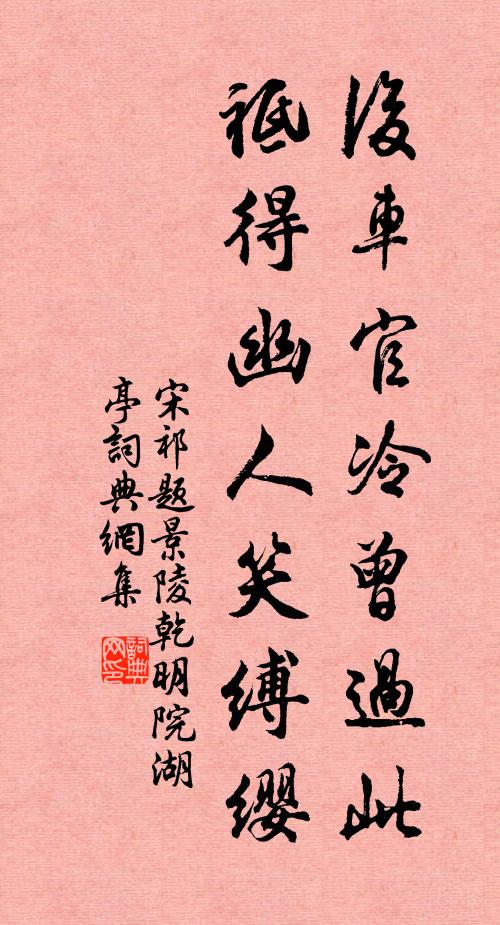 後車官冷曾過此
祗得幽人笑縛纓
宋祁題景陵乾明院湖
亭詞典網集
詞典網印